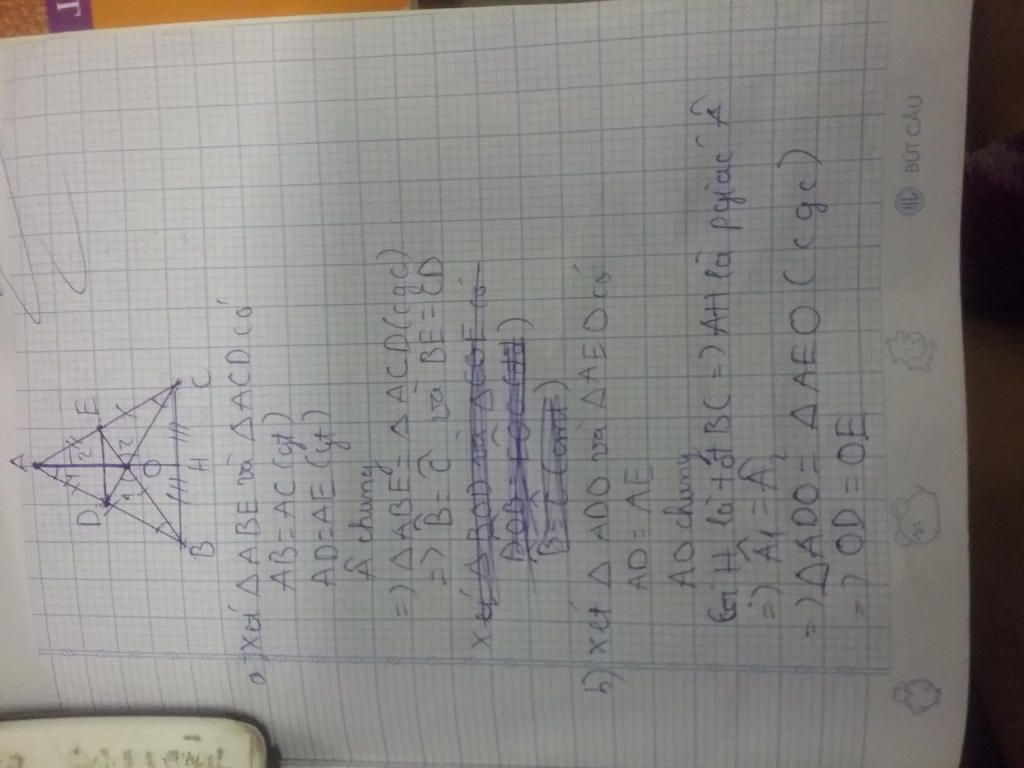 A
D
E
1
2
1
2
O
B
H
C
a) Xét Δ ABE và Δ ACD có
AB = AC (gt)
AD = AE (gt)
Â chung
=) Δ ABE = Δ ACD (cgc)
=) B̂ = Ĉ và BE = CD
Xét Δ BOD và Δ COE có
b) Xét Δ ADO và Δ AEO có
AD = AE
AO chung
H là t đ BC =) AH là pgiác Â
=) Â1 = Â2
=) Δ ADO = Δ AEO (cgc)
=) OD = OE
BÚT CÂU